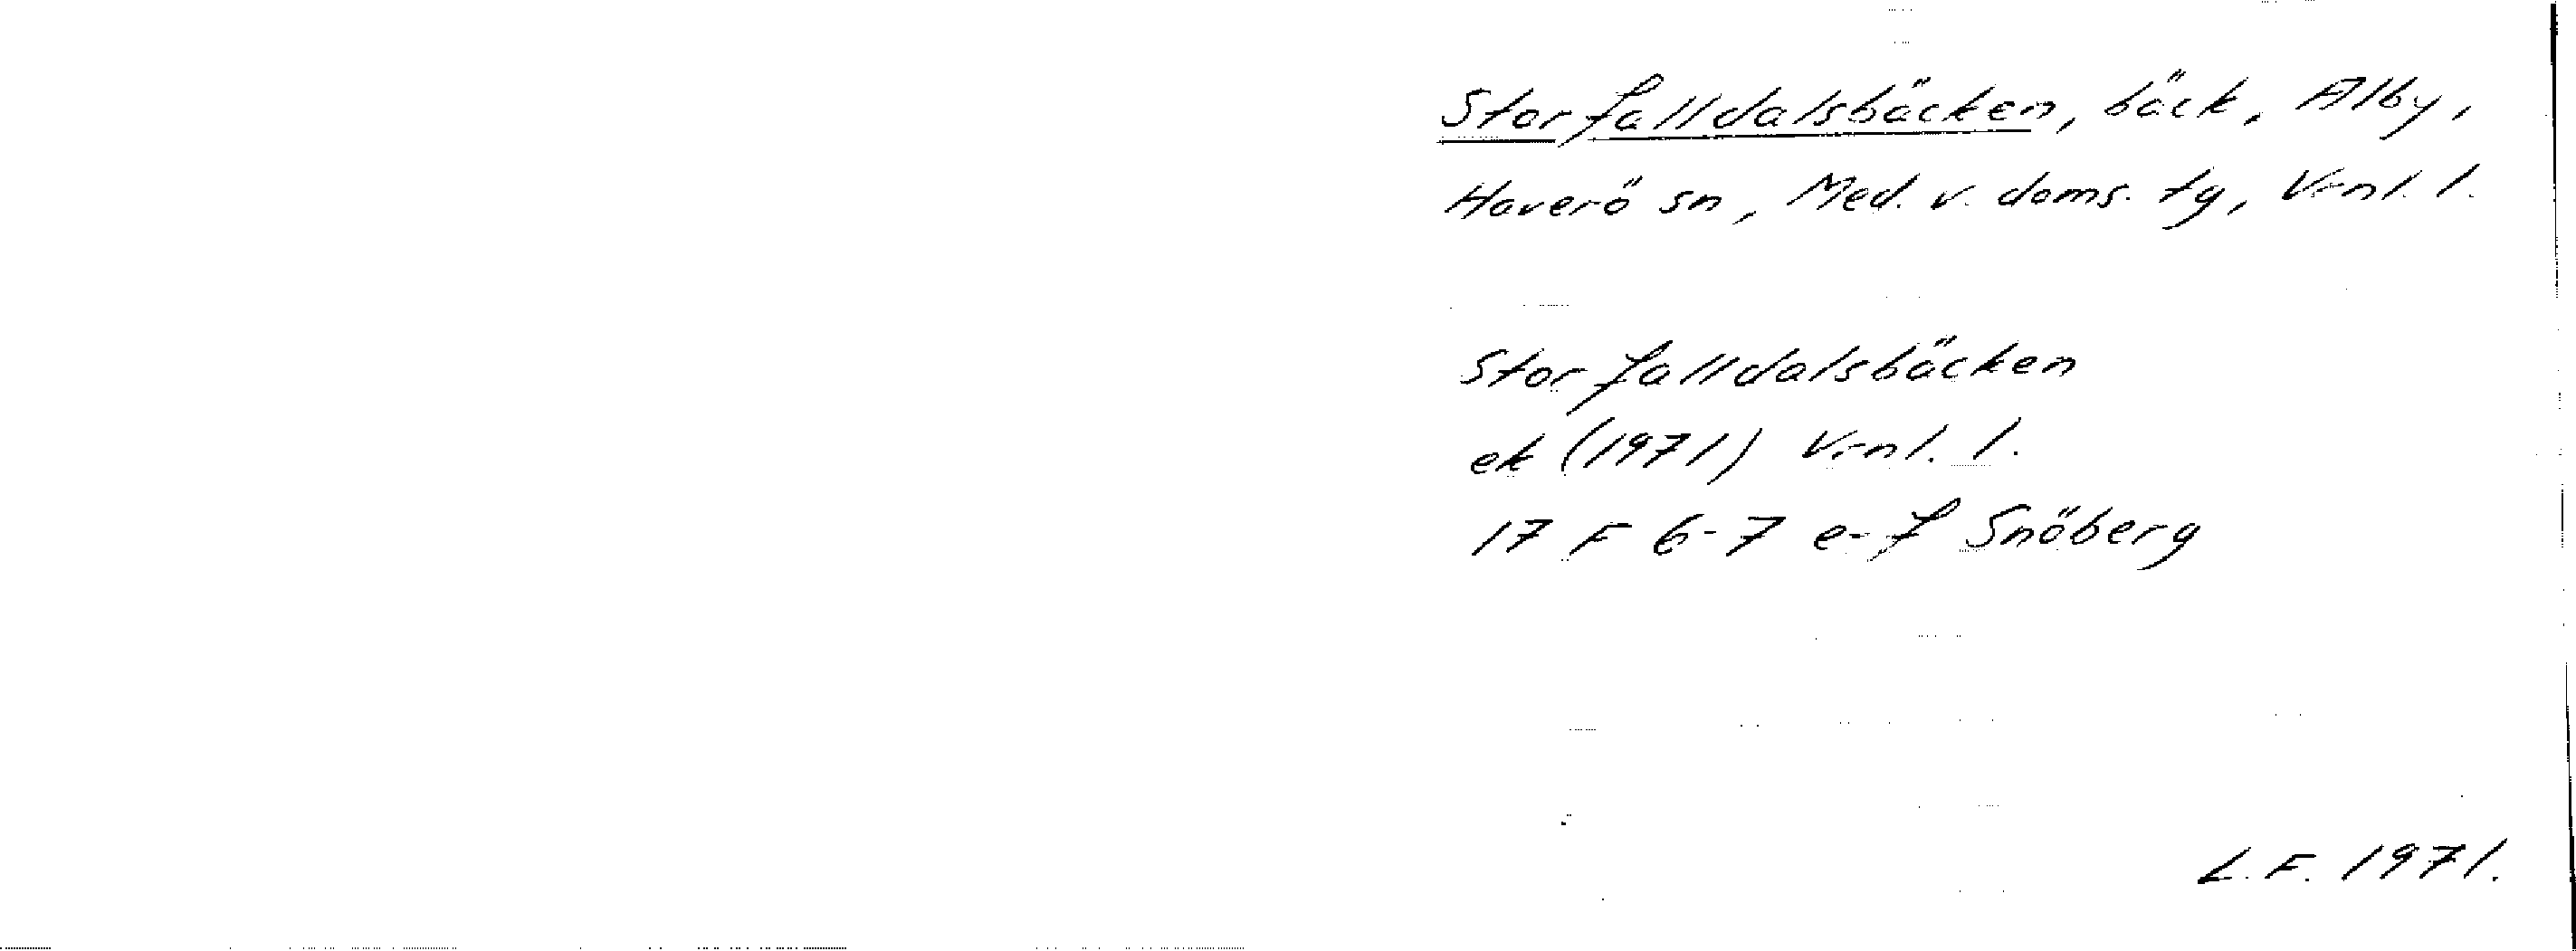 Storfalldalsbäcken, bäck, Alby,
Haverö sn, Med. v. doms. tg, Vrnl. l.
Storfalldalsbäcken
ek (1971) Vrnl. l.
17 F 6-7 e-f Snöberg
L.F. 1971.